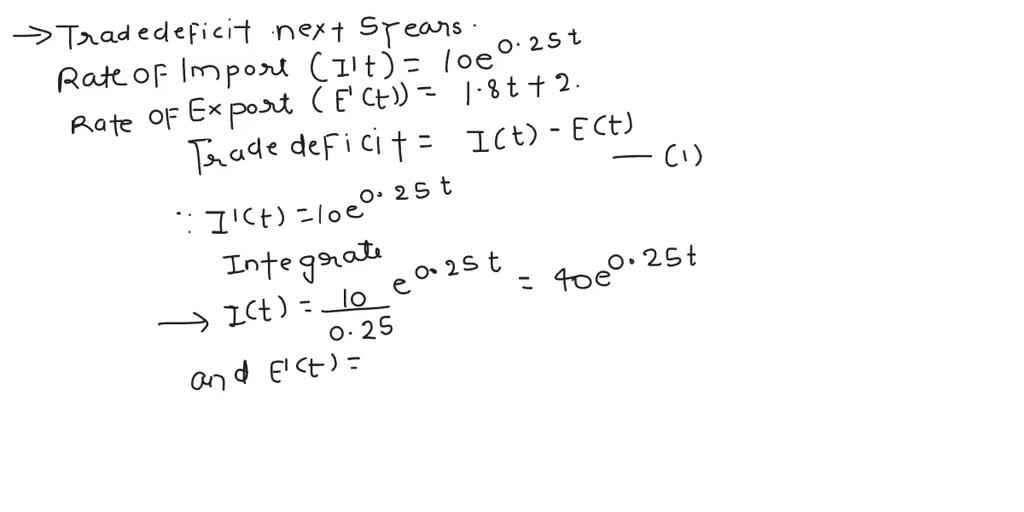 → Tradedeficit next 5 years.
Rate of Import (I't) = 10e^0.25t
Rate of Export (E'(t)) = 1.8t + 2.
Trade deficit = I(t) - E(t) — (1)
∵ I'(t) = 10e^0.25t
Integrate
→ I(t) = 10/0.25 e^0.25t = 40e^0.25t
and E'(t) =